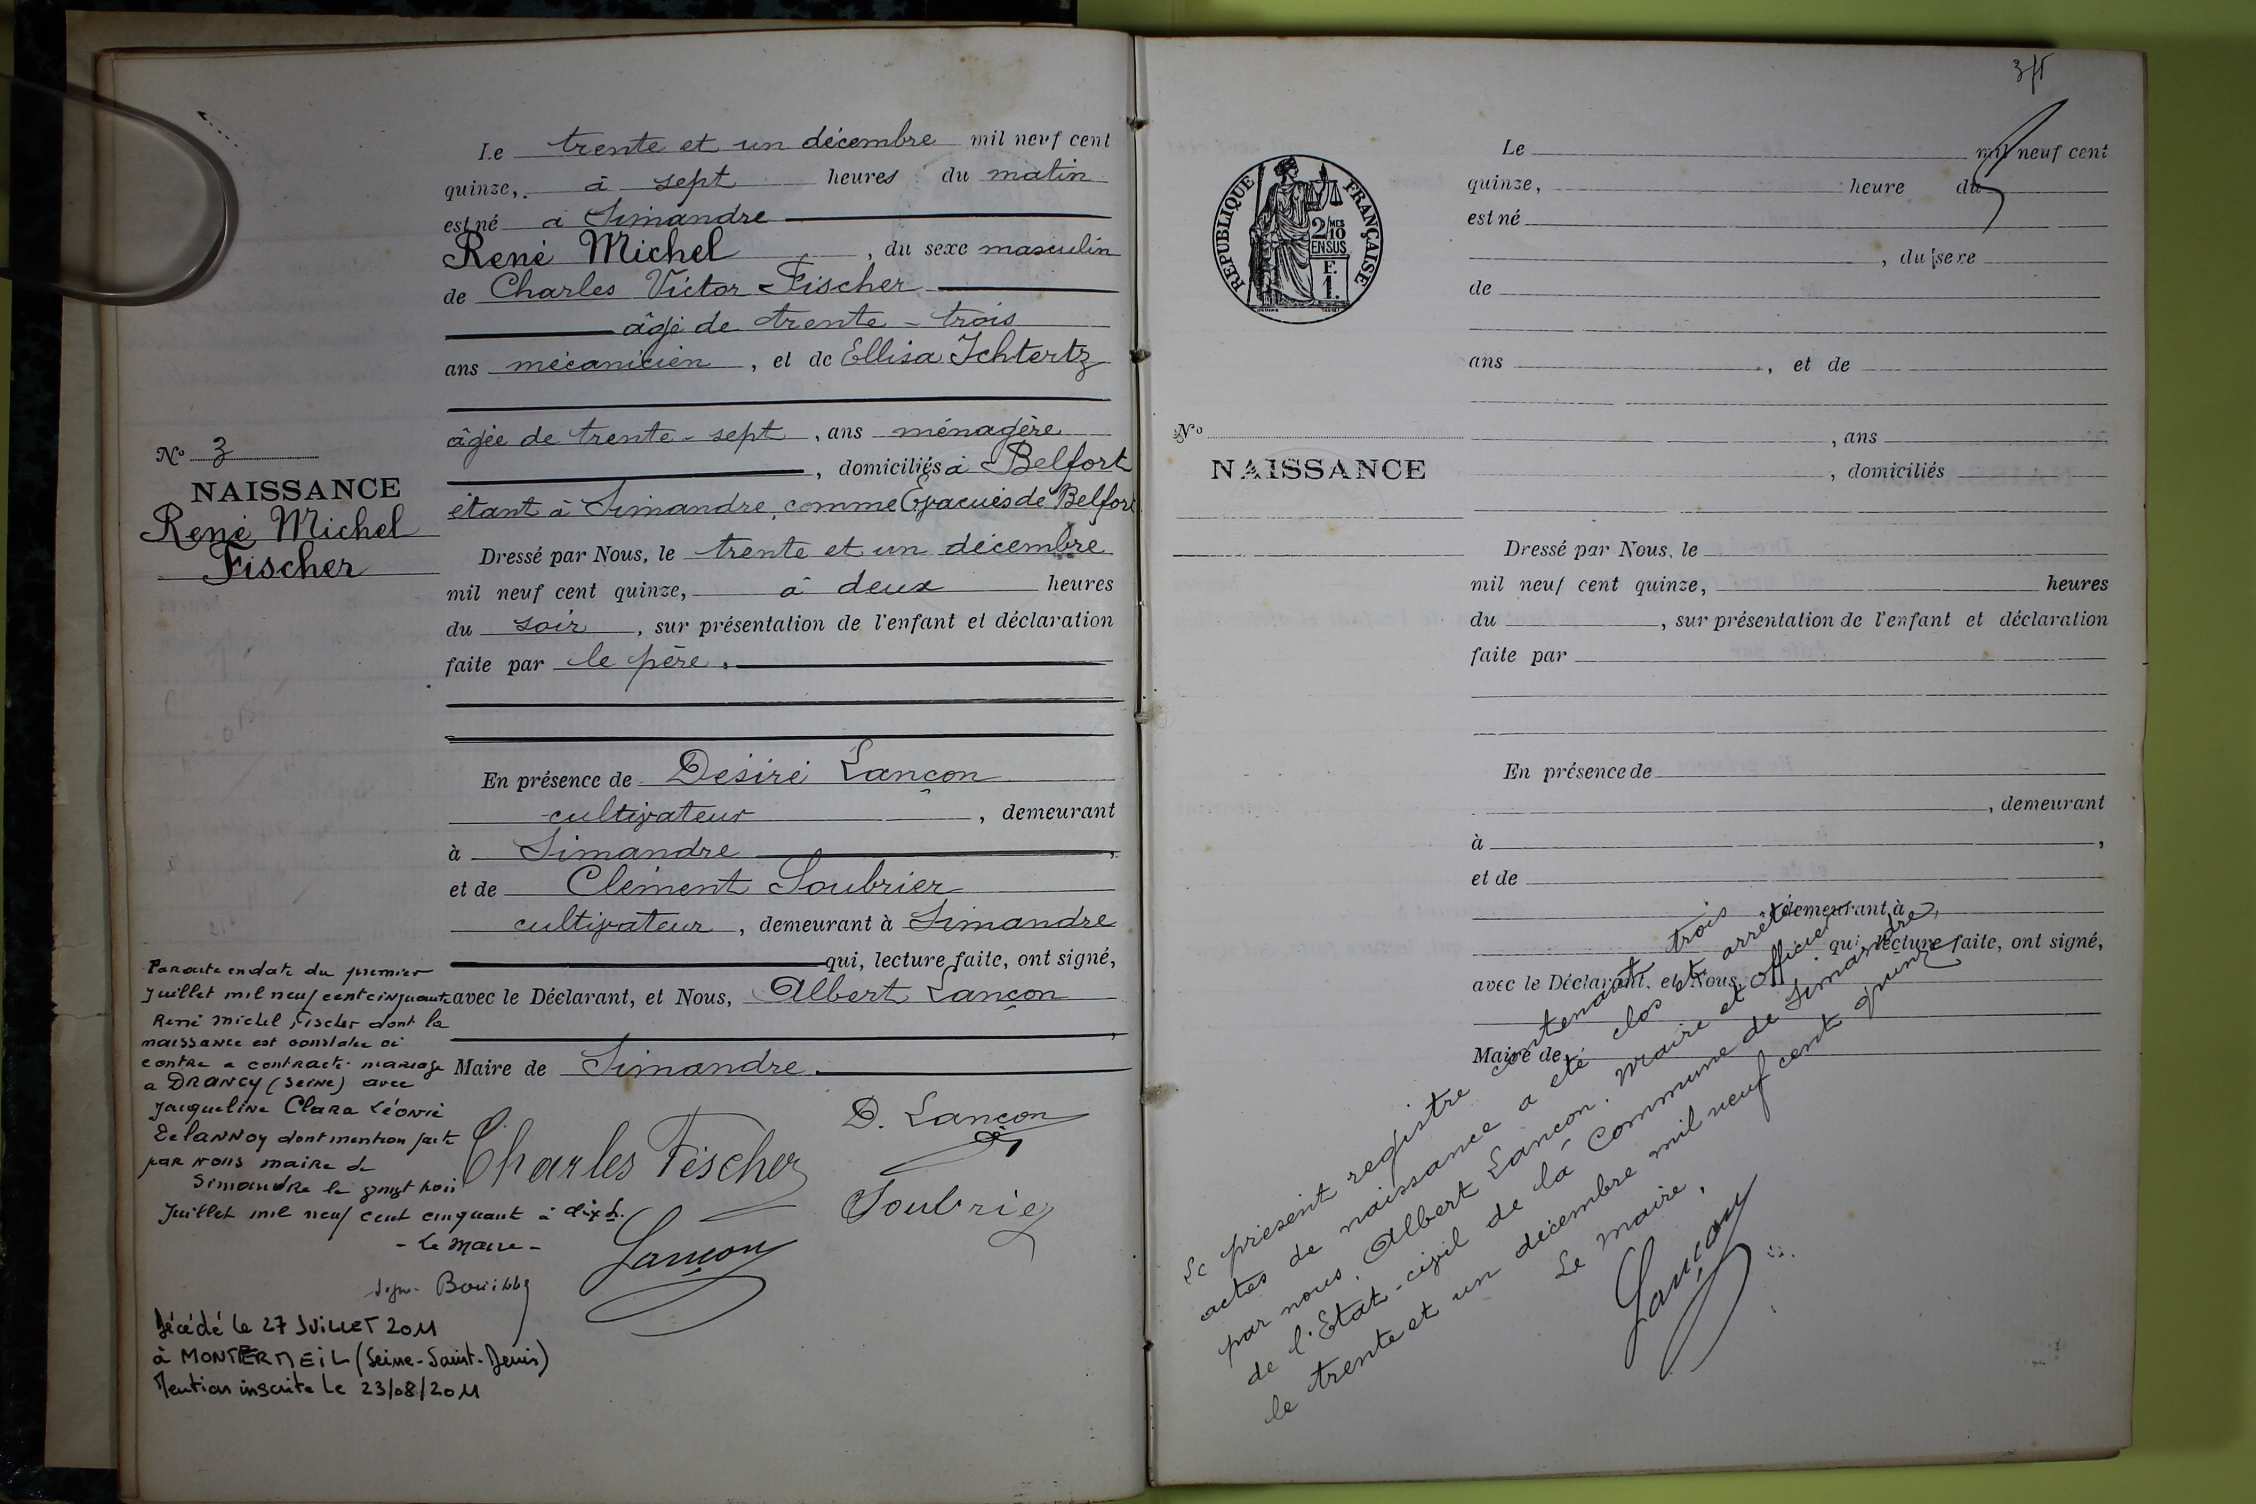 Le trente et un décembre mil neuf cent
quinze, à sept heures du matin
est né à Simandre
René Michel, du sexe masculin
de Charles Victor Fischer
âgé de trente-trois
ans mécanicien, et de Ellisa Ichtertz
âgée de trente-sept, ans ménagère
, domiciliés à Belfort
étant à Simandre, comme Evacués de Belfort
Dressé par Nous, le trente et un décembre
mil neuf cent quinze, à deux heures
du soir, sur présentation de l'enfant et déclaration
faite par le père.
En présence de Désiré Lançon
cultivateur, demeurant
à Simandre,
et de Clément Soubrier
cultivateur, demeurant à Simandre
qui, lecture faite, ont signé,
avec le Déclarant, et Nous, Albert Lançon
,
Maire de Simandre.
D. Lançon
Charles Fischer
Soubrier
Lançon
N° 3
NAISSANCE
René Michel
Fischer
Par acte en date du premier
Juillet mil neuf cent cinquante
René Michel Fischer dont la
naissance est constatée ci
contre a contracté mariage
a DRANCY (Seine) avec
Jacqueline Clara Léonie
DelANNOY dont mention faite
par nous maire de
Simandre le vingt trois
Juillet mil neuf cent cinquante à dix h.
- Le Maire -
Décédé le 27 JUILLET 2011
à MONTFERMEIL (Seine-Saint-Denis)
Mention inscrite le 23/08/2011
REPUBLIQUE FRANÇAISE
2/MES
10
EN SUS
F.
1.
N°
NAISSANCE
Le mil neuf cent
quinze, heure du
est né
, du sexe
de
ans , et de
, ans
, domiciliés
Dressé par Nous, le
mil neuf cent quinze, heures
du , sur présentation de l'enfant et déclaration
faite par
En présence de
, demeurant
à ,
et de
demeurant à
qui lecture faite, ont signé,
avec le Déclarant, et Nous,
Maire de
Le présent registre contenant trois
actes de naissance a été clos et arrêté
par nous, Albert Lançon, Maire et officier
de l'Etat-civil de la Commune de Simandre,
le trente et un décembre mil neuf cent quinze
Le Maire,
Lançon